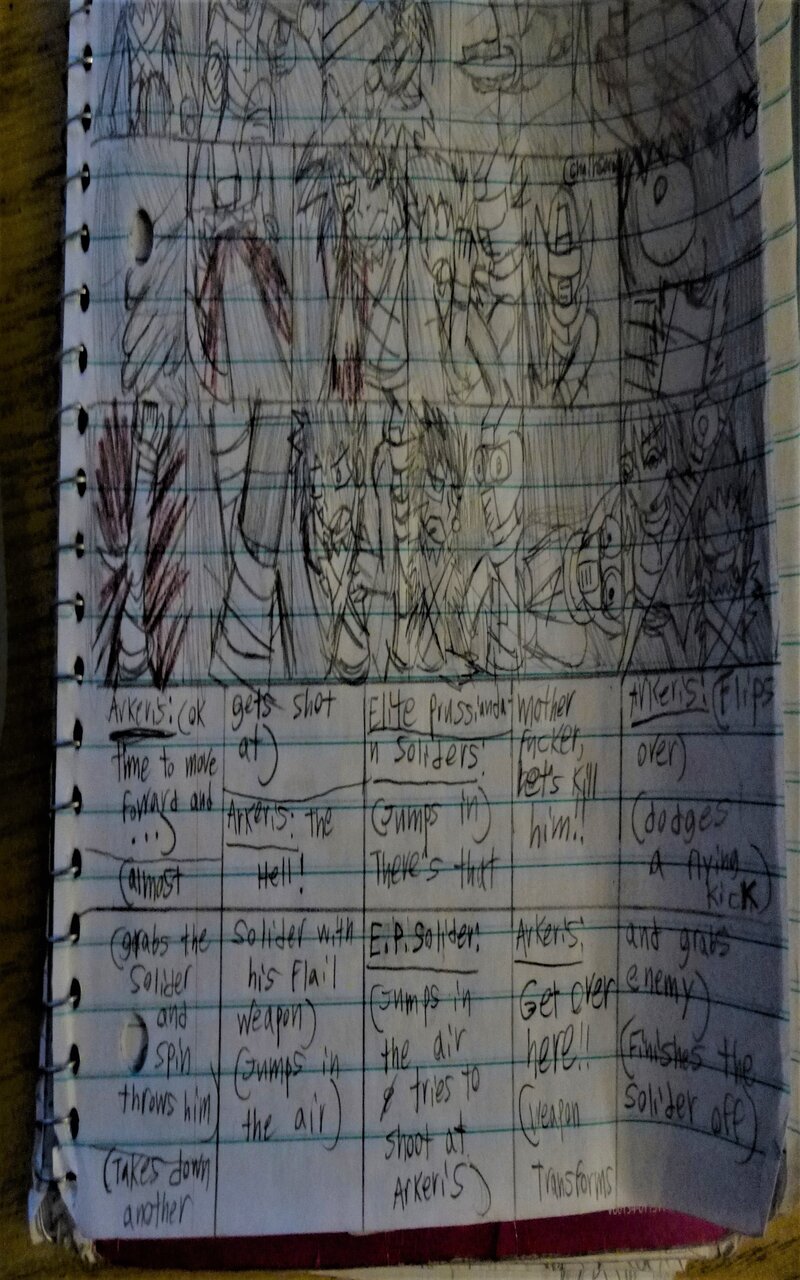 Arkeris: (ok
time to move
forward and
...)
(almost
gets shot
at)
Arkeris: the
Hell!
Elite prussianda-
n Soliders:
(Jumps in)
There's that
mother
fucker,
Let's kill
him!!
Arkeris: (Flips
over)
(dodges
a flying
kick)
(grabs the
Solider
and
spin
throws him)
(Takes down
another
Solider with
his Flail
weapon)
(Jumps in
the air)
E.P. Solider:
(Jumps in
the air
& tries to
shoot at
Arkeris)
Arkeris:
Get over
here!!
(weapon
Transforms
and grabs
enemy)
(Finishes the
Solider off)